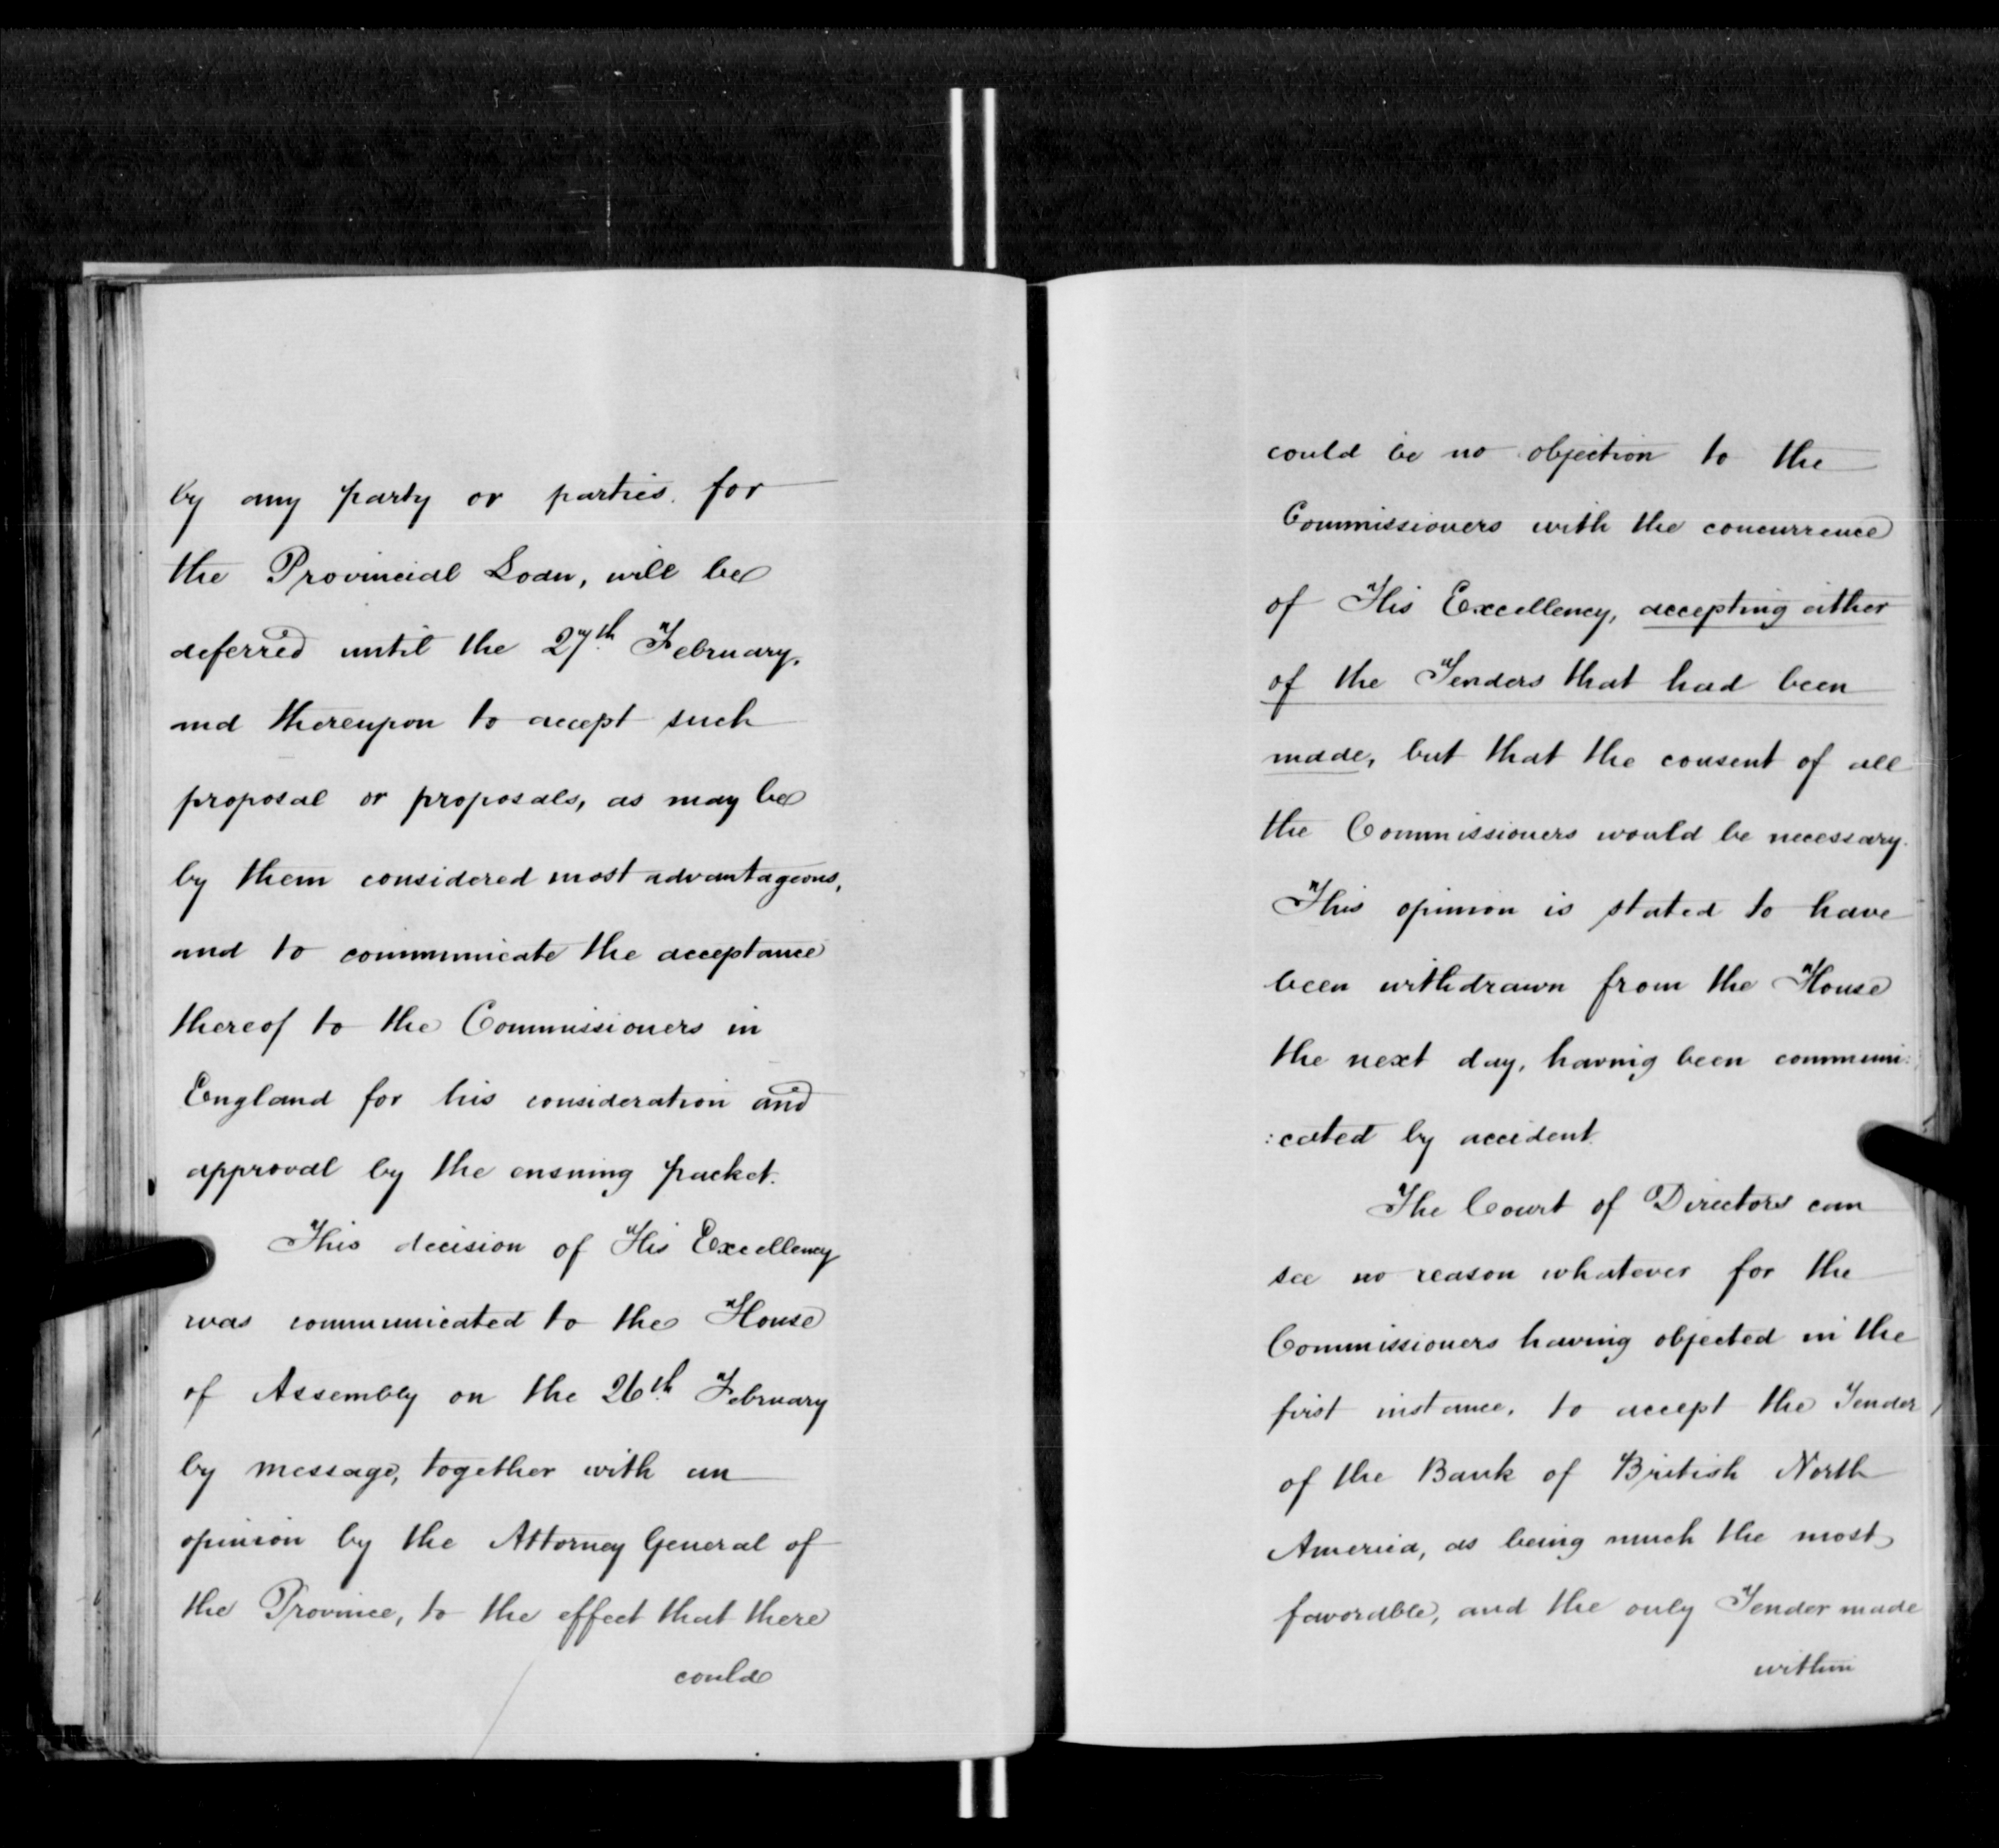 by any party or parties for
the Provincial Loan, will be
deferred until the 27th February,
and thereupon to accept such
proposal or proposals, as may be
by them considered most advantageous,
and to communicate the acceptance
thereof to the Commissioners in
England for his consideration and
approval by the ensuing packet.
This decision of His Excellency
was communicated to the House
of Assembly on the 26th February
by message, together with an
opinion by the Attorney General of
the Province, to the effect that there
could
could be no objection to the
Commissioners with the concurrence
of His Excellency, accepting either
of the Tenders that had been
made, but that the consent of all
the Commissioners would be necessary.
This opinion is stated to have
been withdrawn from the House
the next day, having been communi:
:cated by accident.
The Court of Directors can
see no reason whatever for the
Commissioners having objected in the
first instance, to accept the Tender
of the Bank of British North
America, as being much the most
favorable, and the only Tender made
within